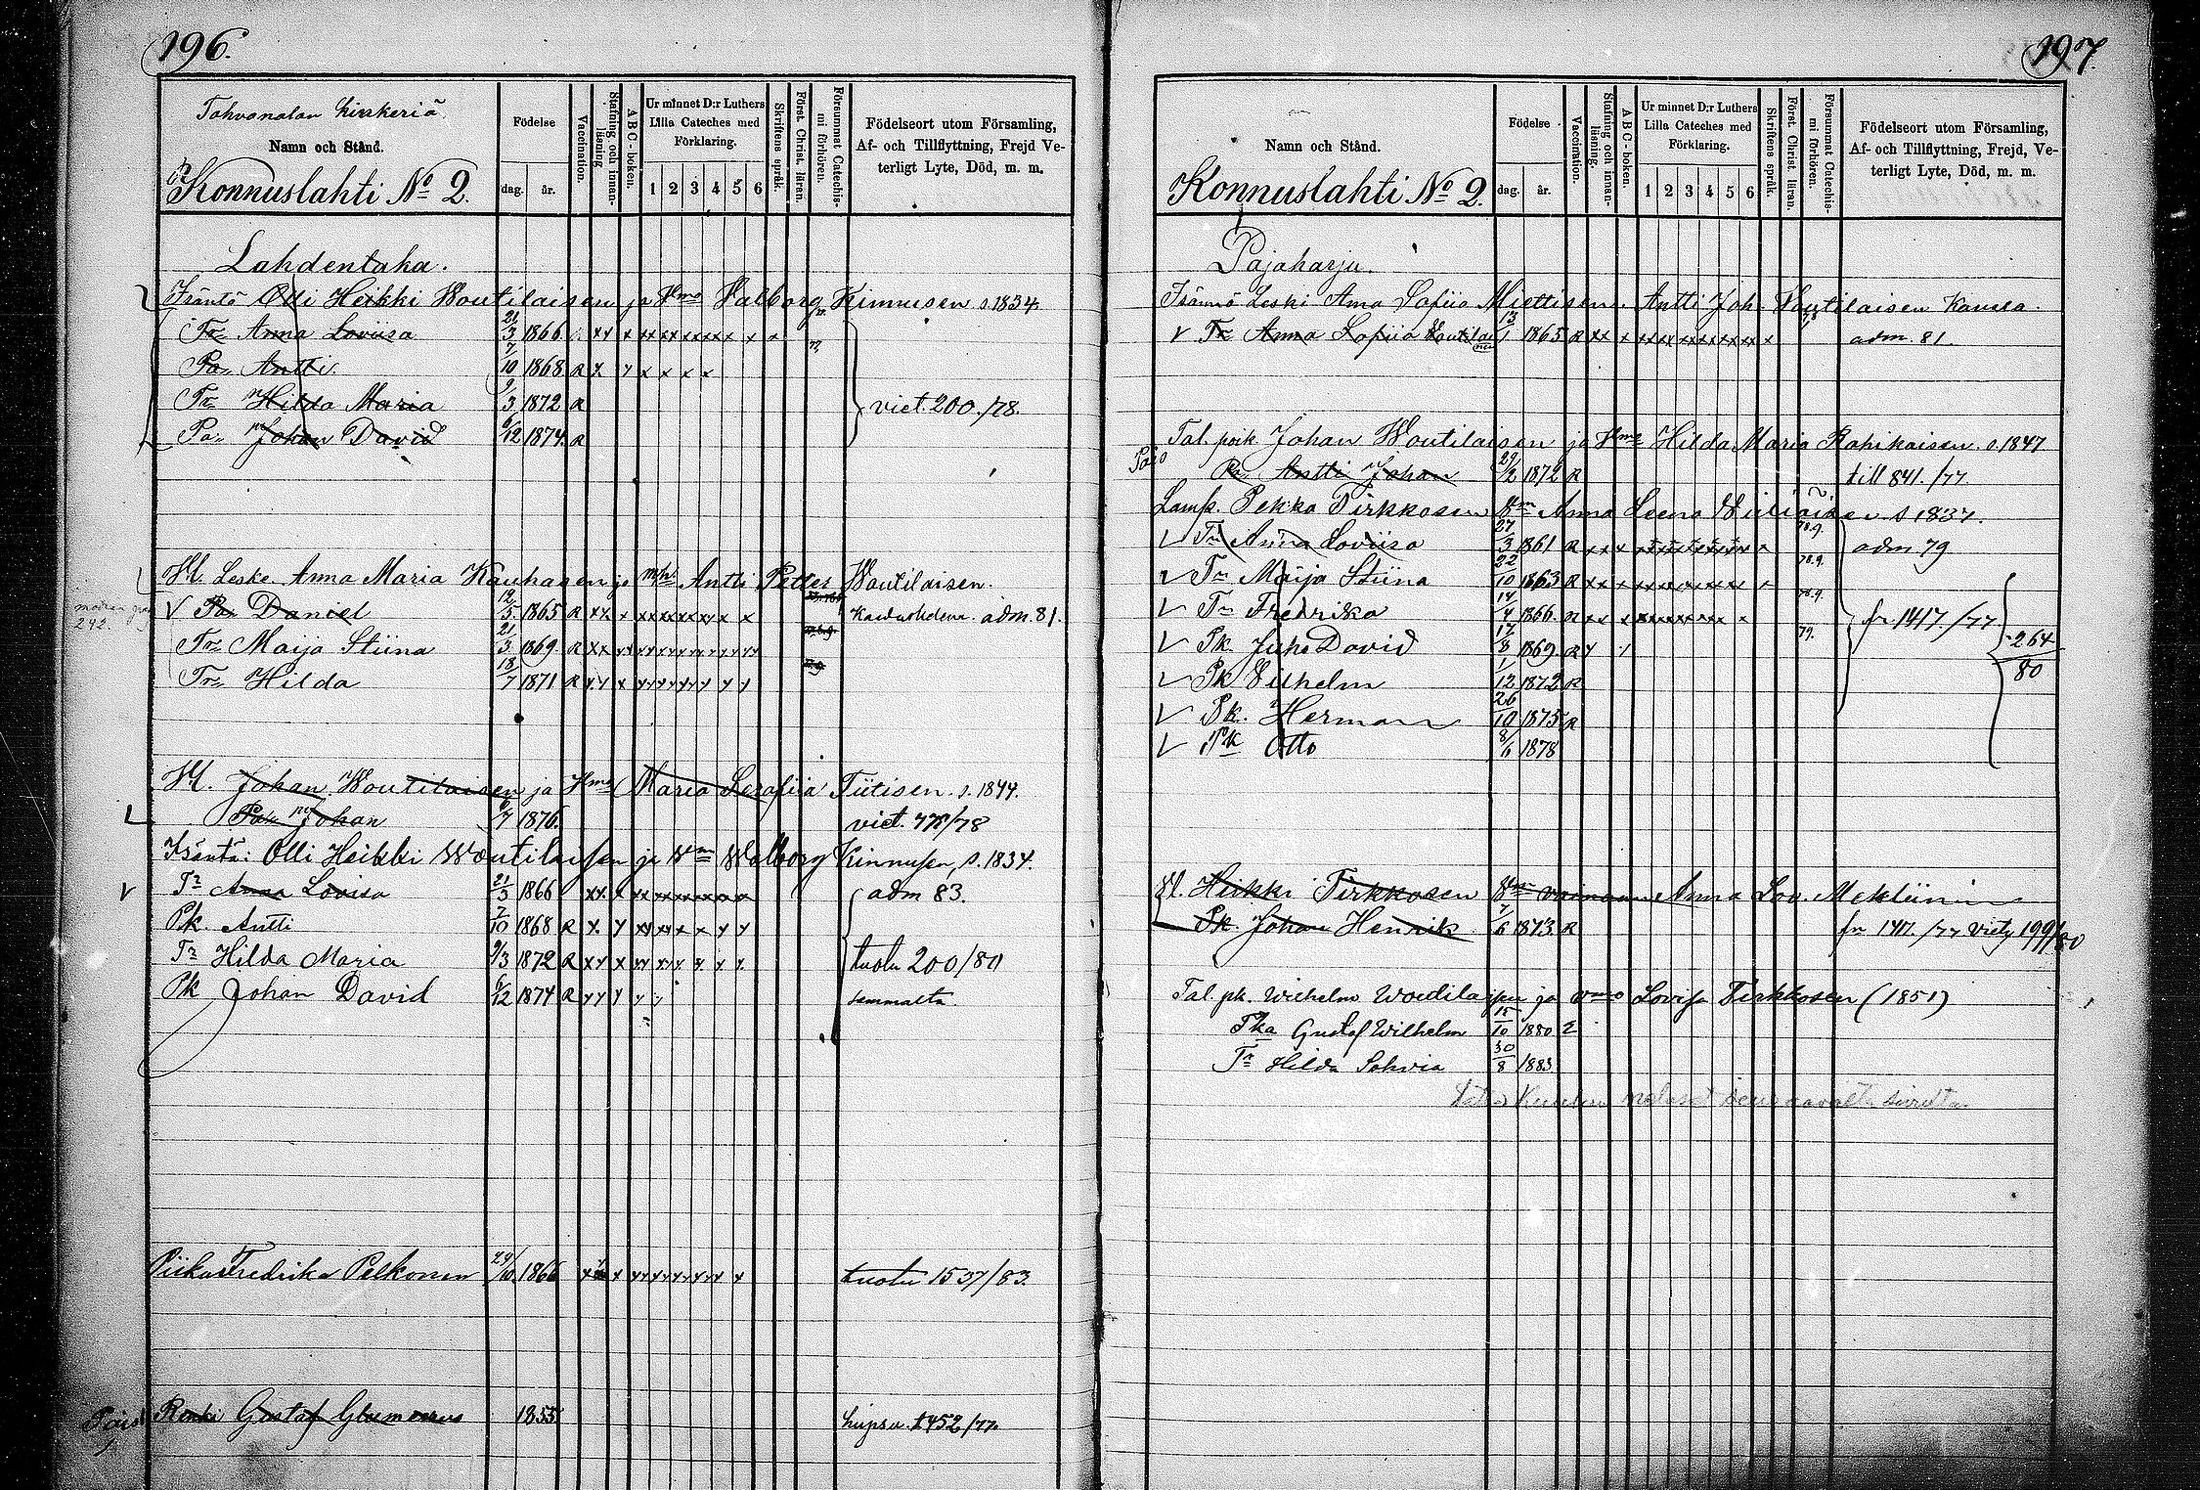 196.
Tahvonalan kinkeriä
Namn och Stånd.
Konnuslahti No 2.
Födelse
dag. år.
Vaccination.
Stafning och innan-läsning
A B C - boken.
Ur minnet D:r Luthers Lilla Cateches med Förklaring.
1 2 3 4 5 6
Skriftens språk.
Först. Christ. läran.
Försummat Catechis-mi förhören.
Födelseort utom Församling, Af- och Tillflyttning, Frejd Ve-terligt Lyte, Död, m. m.
Lahdentaka.
Isäntä Olli Heikki Woutilaisen ja Hmo Valborg Kinnusen s. 1834.
Tr Anna Loviisa 21/3 1866 xx x xx xx xx xx x x
Pa Antti 7/10 1868 R x y x x x x
Tr Hilda Maria 9/3 1872 R viet. 200./78.
Pa Johan David 6/12 1874. R
Hl. Leske Anna Maria Kauhasen ja Antti Petter Woutilaisen.
V Pa Daniel 12/5 1865 R xx x xx xx xx x x adm. 81.
Tr Maija Stiina 21/3 1869 R xx
Tr Hilda 18/7 1871 R
Hl. Johan Woutilaisen ja Hmo Maria Serafiia Tiitisen s. 1844.
Pa Johan 6/7 1876. viet. 778/78
Isäntä: Olli Heikki Woutilaisen ja Vm Walborg Kinnusen, s. 1834.
V Tr Anna Lovisa 21/3 1866 adm 83.
Pk. Antti 7/10 1868 R
Tr Hilda Maria 9/3 1872 R tuotu 200/80
Pk Johan David 6/12 1874 R semmalta
Piika Fredrika Pelkonen 29/10 1866 tuotu 1537/83.
Renki Gustaf 1855 1452/77.
197.
Namn och Stånd.
Konnuslahti No 2.
Födelse
dag. år.
Vaccination.
Stafning och innan-läsning.
A B C - boken.
Ur minnet D:r Luthers Lilla Cateches med Förklaring.
1 2 3 4 5 6
Skriftens språk.
Först. Christ. läran.
Försummat Catechis-mi förhören.
Födelseort utom Församling, Af- och Tillflyttning, Frejd, Ve-terligt Lyte, Död, m. m.
Pajaharju.
Isännö Leski Anna Sofiia Miettisen. Antti Joh. Voutilaisen kanssa.
V Tr Anna Sofiia Voutilainen 13/1 1865 R adm. 81.
Tal. poik Johan Woutilaisen ja Hmo Hilda Maria Rahikaisen. s. 1847
Pois Pa Antti Johan 29/2 1872 R till 841./77
Lamp. Pekka Tirkkosen Vm Anna Leena s 1837.
V Tr Anna Loviisa 27/3 1861 R 78.9. adm 79
V Tr Maija Stiina 22/10 1863 R 78.9.
V Tr Fredrika 14/4 1866 R 78.9. fr 1417/77
V Pk. Juho David 17/3 1869. R 79. 264/80
V Pk Vilhelm 1/12 1872 R
V Pk. Herman 26/10 1875 R
V Pk Otto 8/6 1878
Hl. Heikki Tirkkosen Anna Lov.
Pk. Johan Henrik 7/6 1873. R fr 1417./77 viety 199/80
Tal. pk. Wilhelm Woutilaisen ja vmo Lovisa Tirkkosen (1851)
Pka Gustaf Wilhelm 15/10 1880
Tr Hilda 30/8 1883